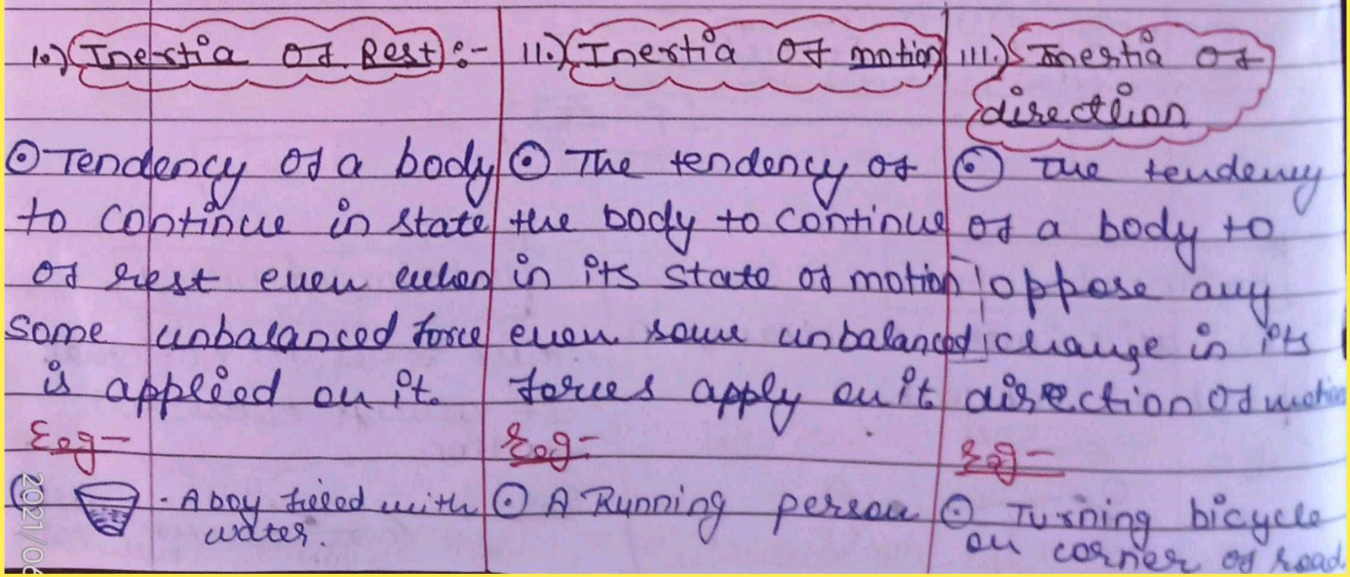 1.) Inertia Of Rest :-
⊙ Tendency of a body
to continue in state
of rest even when
some unbalanced force
is applied on it.
Eg-
- A boy filled with
water.
11.) Inertia Of motion
⊙ The tendency of
the body to continue
in its state of motion
even some unbalanced
forces apply on it
Eg-
⊙ A Running person
111.) Inertia Of
direction
⊙ The tendency
of a body to
oppose any
change in its
direction of motion
Eg-
⊙ Turning bicycle
on corner of road